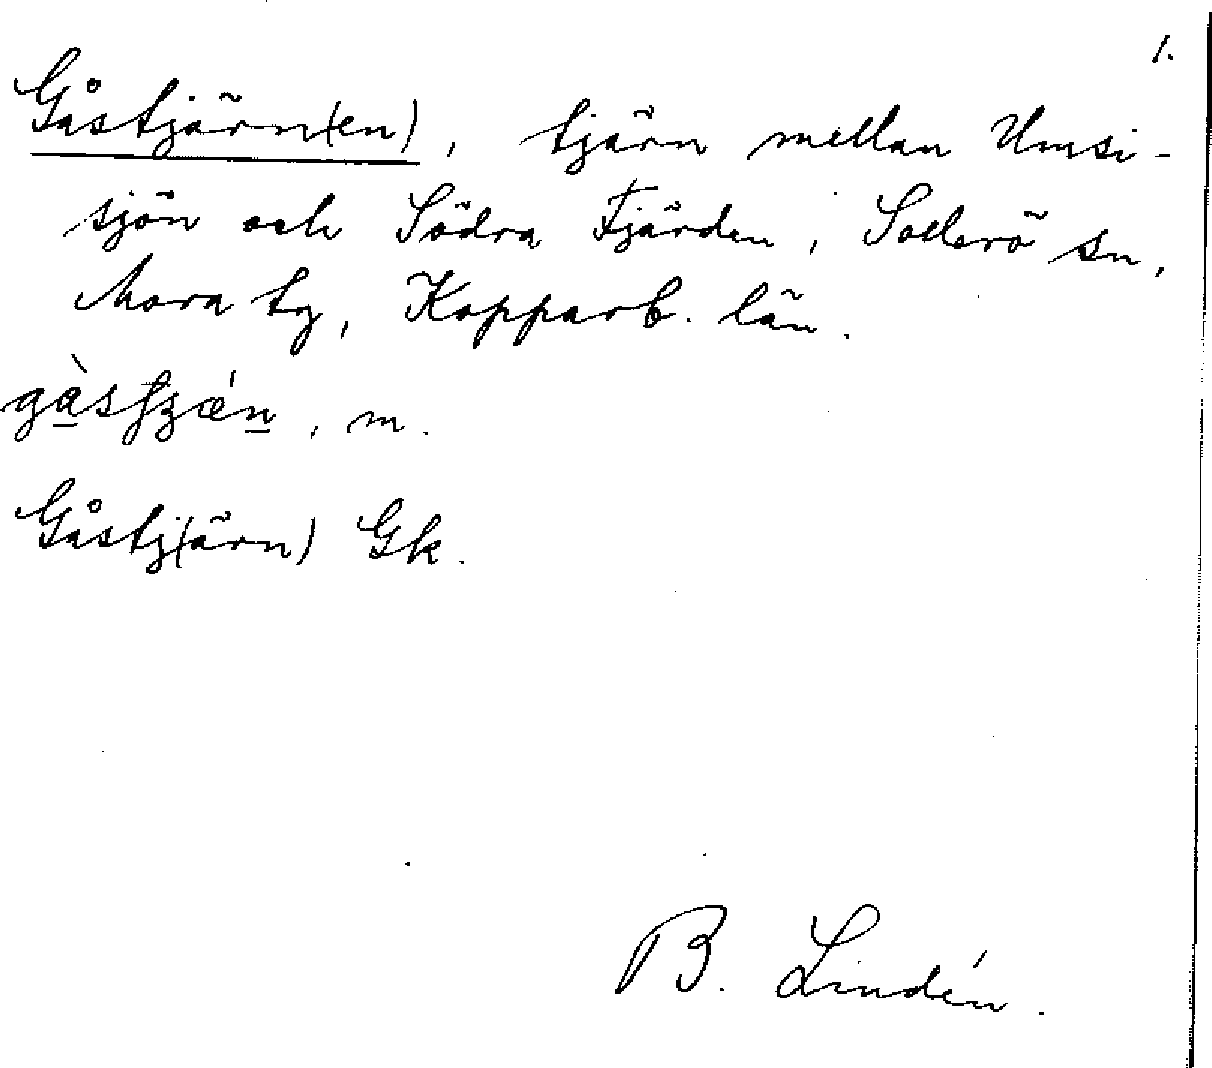 1.
Gåstjärn(en), tjärn mellan Umsi-
sjön och Södra Fjärden, Sollerö sn,
Mora tg, Kopparb. län.
m.
Gåstj(ärn) Gk.
B. Lindén.